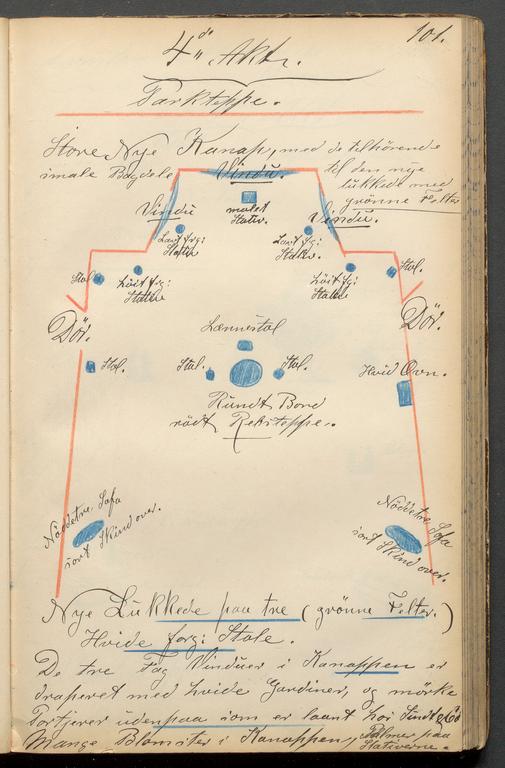 101.
4de Akt.
Parkteppe.
Store Nye Kanap, med de tilhörende
imale Bagdele
til den nye
lukkede med
grönne Felter
Vindu.
Vindu
Vindu.
malet
Stativ.
Lavt frg:
Stativ
Lavt frg:
Stativ.
Stol
Höit frg:
Stativ
Höit frg:
Stativ
Stol.
Dör.
Dör.
Lænnestol
Stol.
Stol.
Stol.
Hvid Ovn.
Rundt Bord
rödt Rekteppe.
Nöddetræ Sofa
sort Skind over.
Nöddetræ Sofa
sort Skind over.
Nye Lukkede paa tre (grönne Felter.)
Hvide forg: Stole.
De tre Fag Vinduer i Kanappen er
draperet med hvide Gardiner, og mörke
Portierer udenpaa som er laant hos
Mange Blomster i Kanappen, Palmer paa
Stativerne.